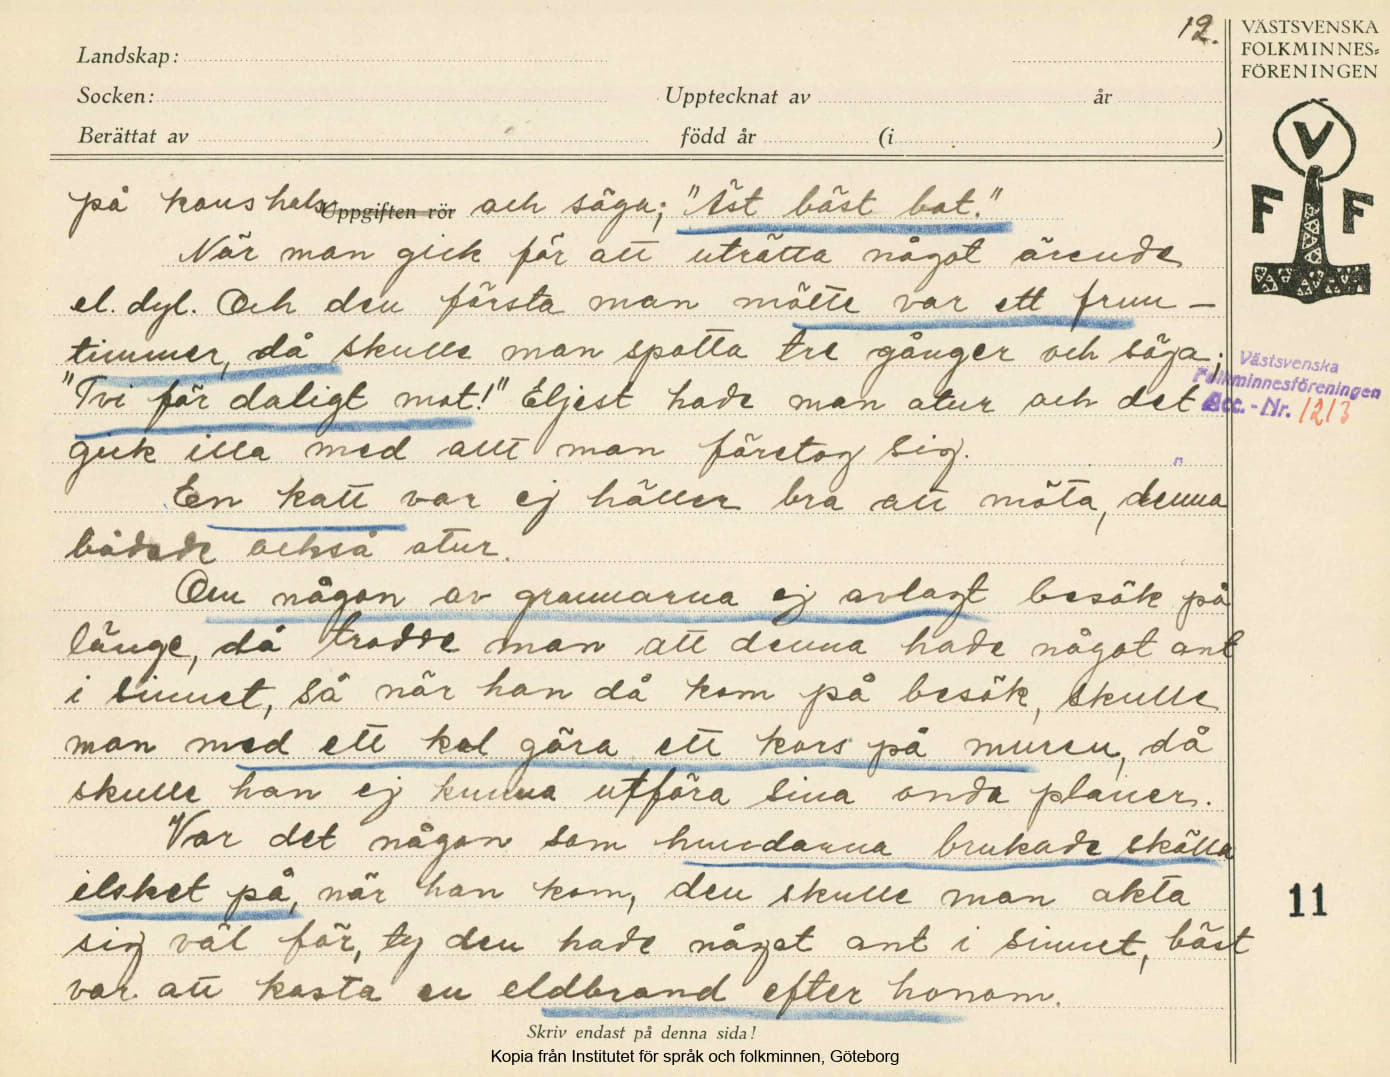 12.
VÄSTSVENSKA
FOLKMINNES=
FÖRENINGEN
Landskap:
Socken: Upptecknat av år
Berättat av född år (i )
V
F F
på kons hals Uppgiften rör och säga; "Äst bäst bot."
När man gick för att uträtta något ärende
el. dyl. Och den första man mötte var ett fruu-
timmer, då skulle man spotta tre gånger och säga;
"Tvi för daligt mot!" Eljest hade man otur och det
gick illa med allt man företog sig.
En katt var ej häller bra att möta, denna
bådade också otur.
Om någon av grannarna ej avlagt besök på
länge, då trodde man att denna hade något ont
i sinnet, så när han då kom på besök, skulle
man med ett kol göra ett kors på muren, då
skulle han ej kunna utföra sina onda planer.
Var det någon som hundarna brukade skälla
ilsket på, när han kom, den skulle man akta
sig väl för, ty den hade något ont i sinnet, bäst
var att kasta en eldbrand efter honom.
Västsvenska
Folkminnesföreningen
Acc.-Nr. 1213
11
Skriv endast på denna sida!
Kopia från Institutet för språk och folkminnen, Göteborg